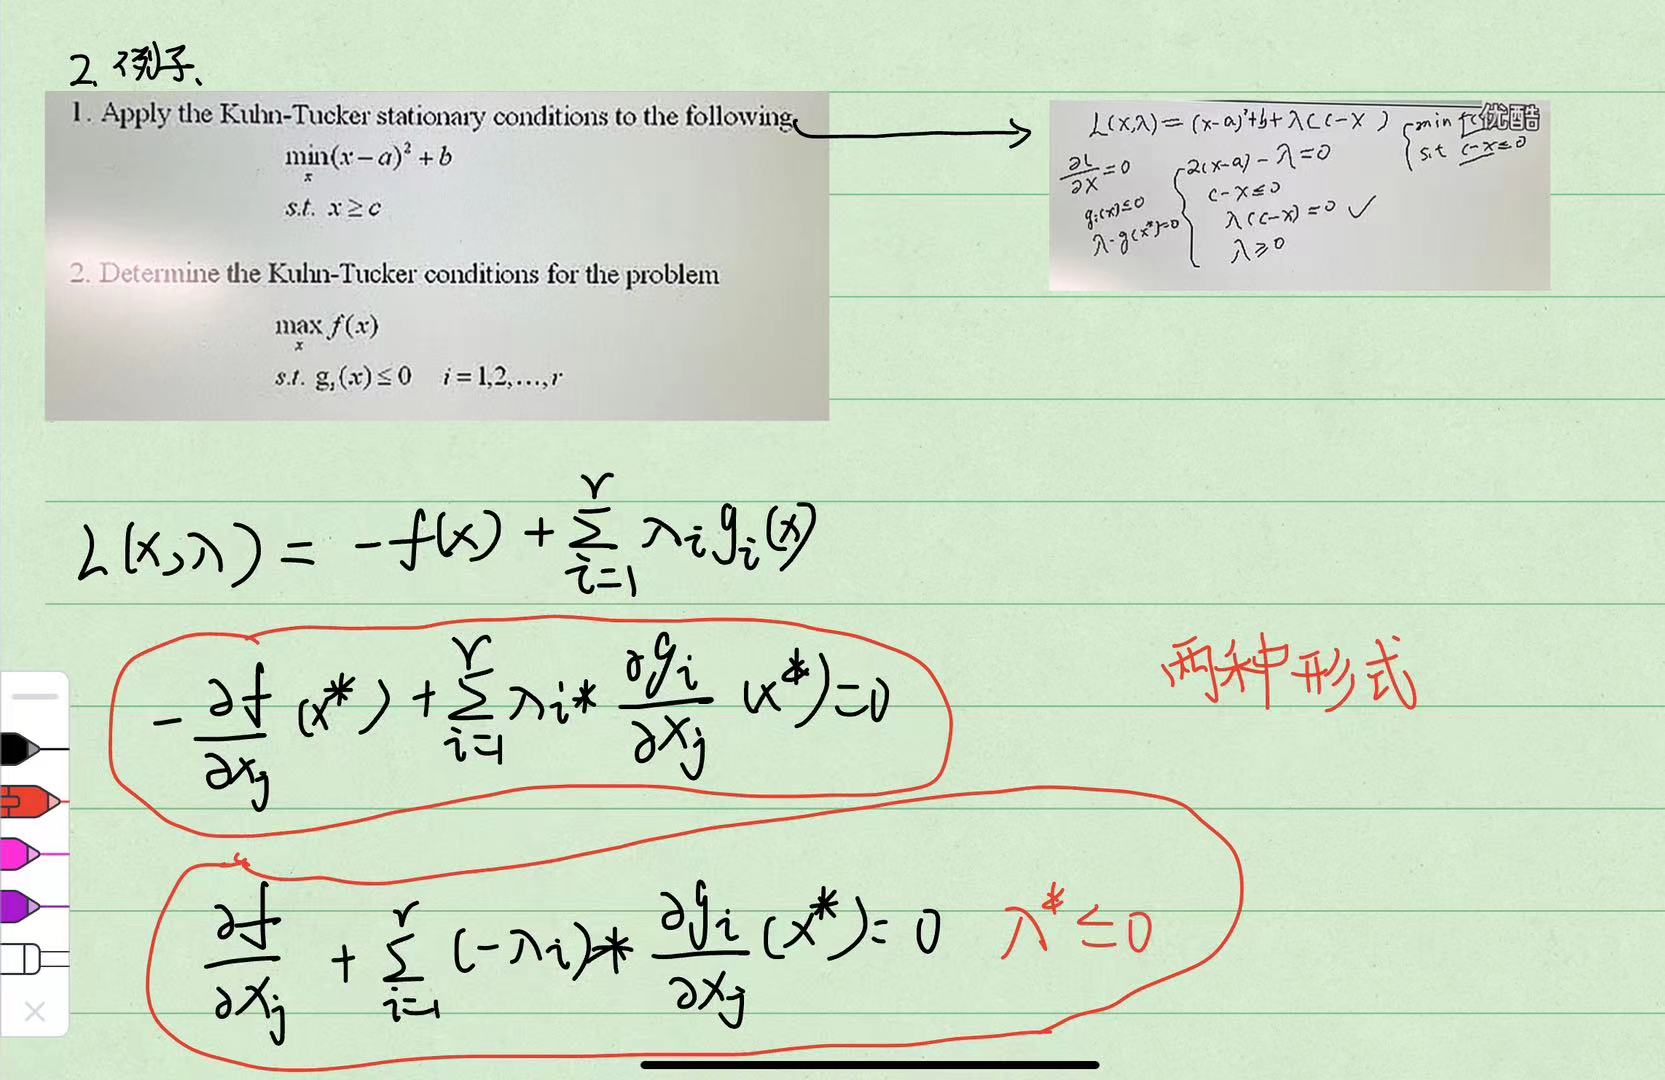 2. 例子、
1. Apply the Kuhn-Tucker stationary conditions to the following
min(x-a)² + b
x
s.t. x ≥ c
2. Determine the Kuhn-Tucker conditions for the problem
max f(x)
x
s.t. gᵢ(x) ≤ 0 i = 1,2,…,r
L(x,λ) = (x-a)²+b+λ(c-x)
min
优酷
s.t c-x≤0
∂L/∂x = 0
2(x-a) - λ = 0
gᵢ(x)≤0
c-x≤0
λ·g(x*)=0
λ(c-x) = 0 ✓
λ≥0
L(x,λ) = -f(x) + Σᵢ₌₁ʳ λᵢ gᵢ(x)
- ∂f/∂xⱼ (x*) + Σᵢ₌₁ʳ λᵢ* ∂gᵢ/∂xⱼ (x*) = 0
两种形式
∂f/∂xⱼ + Σᵢ₌₁ʳ (-λᵢ)* ∂gᵢ/∂xⱼ (x*) = 0 λ* ≤ 0